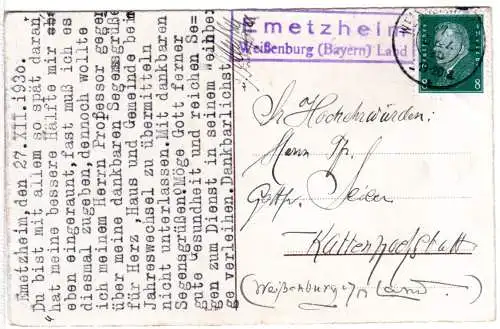 Emetzheim, den 27.XII.1930.
"Du bist mit allem so spät daran,
hat meine bessere Hälfte mir
eben eingeraunt, fast muß ich es
diesmal zugeben, dennoch wollte
ich meinem Herrn Professor gegen
über meine dankbaren Segensgrüße
für Herz, Haus und Gemeinde beim
Jahreswechsel zu übermitteln
nicht unterlassen. Mit dankbaren
Segensgrüßen! Möge Gott ferner
gute Gesundheit und reichen Se=
gen zum Dienst in seinem Weinber
ge verleihen. Dankbarlichst
Emetzheim
Weißenburg (Bayern) Land
8
Sr Hochehrwürden:
Herrn Pfr.
Kattenhochstatt
(Weißenburg i/B Land)